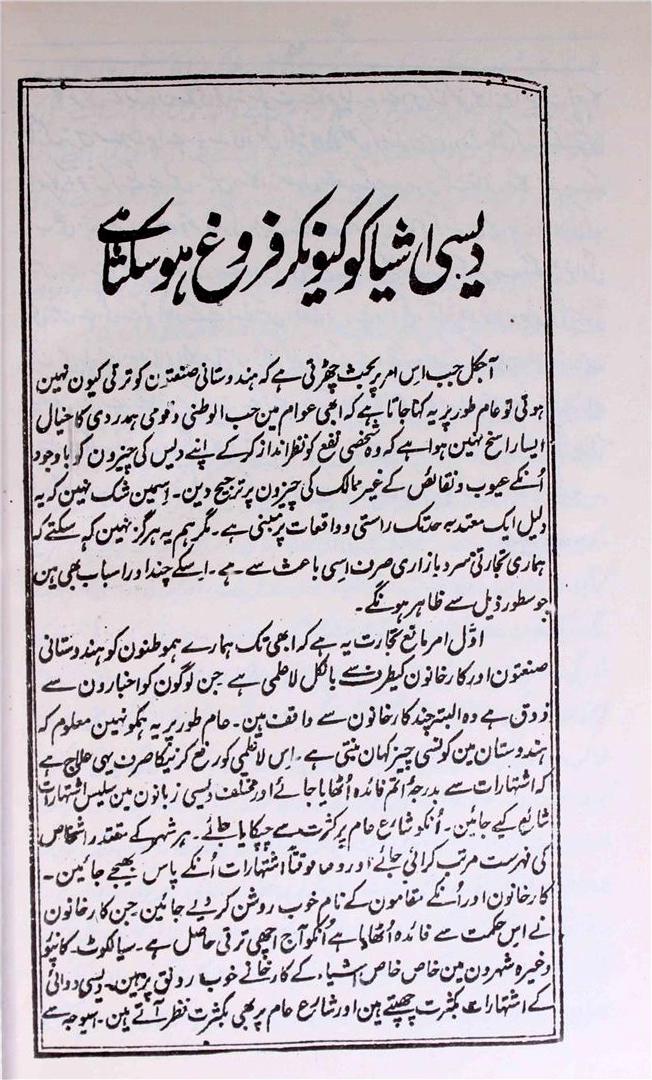 دیسی اشیا کو کیونکر فروغ ہو سکتا ہے
آجکل جب اِس امر پر بحث چھڑتی ہے کہ ہندوستانی صنعتون کو ترقی کیون نہین
ہوتی تو عام طور پر یہ کہا جاتا ہے کہ ابھی عوام مین حب الوطنی و قومی ہمدردی کا خیال
ایسا راسخ نہین ہوا ہے کہ وہ شخصی نفع کو نظر انداز کر کے اپنے دیس کی چیزون کو باوجود
اُنکے عیوب و نقائص کے غیر ممالک کی چیزون پر ترجیح دین۔ اِسمین شک نہین کہ یہ
دلیل ایک معتدبہ حد تک راستی و واقعات پر مبنی ہے۔ مگر ہم یہ ہرگز نہین کہہ سکتے کہ
ہماری تجارتی سرد بازاری صرف اسی باعث سے ہے۔ اِسکے چند اور اسباب بھی ہین
جو سطور ذیل سے ظاہر ہونگے۔
اوّل امر مانع تجارت یہ ہے کہ ابھی تک ہمارے ہموطنون کو ہندوستانی
صنعتون اور کارخانون کیطرف سے بالکل لاعلمی ہے جن لوگون کو اخبارون سے
ذوق ہے وہ البتہ چند کارخانون سے واقف ہین۔ عام طور پر یہ ہمکو نہین معلوم کہ
ہندوستان مین کونسی چیز کہان بنتی ہے۔ اِس لاعلمی کو رفع کرنیکا صرف یہی علاج ہے
کہ اشتہارات سے بدرجۂ اتم فائدہ اُٹھایا جائے اور مختلف دیسی زبانون مین سلیس اشتہارات
شائع کیے جائین۔ اُنکو شارع عام پر کثرت سے چپکایا جائے۔ ہر شہر کے مقتدر اشخاص
کی فہرست مرتب کرائی جائے اور وقتاً فوقتاً اشتہارات اُنکے پاس بھیجے جائین۔
کارخانون اور اُنکے مقامون کے نام خوب روشن کر دیے جائین جن کارخانون
نے اِس حکمت سے فائدہ اُٹھایا ہے اُنکو آج اچھی ترقی حاصل ہے۔ سیالکوٹ۔ کانپور
وغیرہ شہرون مین خاص خاص اشیاء کے کارخانے خوب رونق پر ہین۔ دیسی دوائی
کے اشتہارات بکثرت چھپتے ہین اور شارع عام پر بھی بکثرت نظر آتے ہین۔ اسیوجہ سے